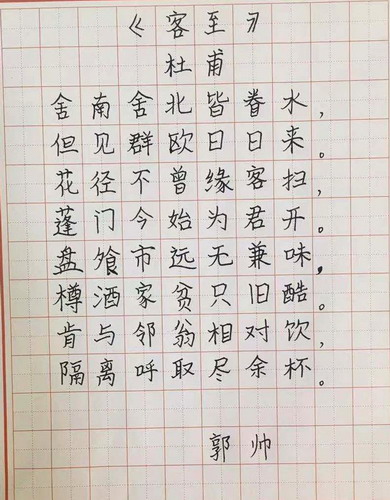 《客至》
杜甫
舍南舍北皆眷水，
但见群欧日日来。
花径不曾缘客扫，
蓬门今始为君开。
盘飧市远无兼味，
樽酒家贫只旧酷。
肯与邻翁相对饮，
隔离呼取尽余杯。
郭帅